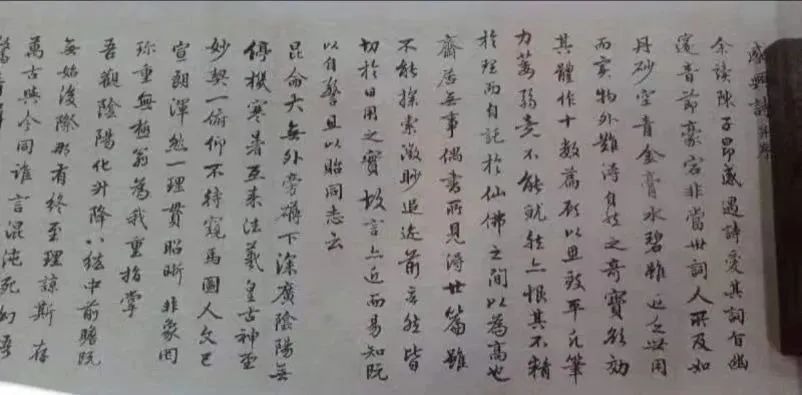 感興詩并序
余讀陳子昂感遇詩愛其詞旨幽
邃音節豪宕非當世詞人所及如
丹砂空青金膏水碧雖近乏世用
而實物外難得自然之奇寶欲効
其體作十數篇顧以思致平凡筆
力萎弱竟不能就然亦恨其不精
於理而自託於仙佛之間以為高也
齋居無事偶書所見得廿篇雖
不能探索微眇追迹前言然皆
切於日用之實故言亦近而易知既
以自警且以貽同志云
昆侖大無外旁礴下深廣陰陽無
停機寒暑互来往羲皇古神聖
妙契一俯仰不待窺馬圖人文已
宣朗渾然一理貫昭晰非象罔
珍重無極翁為我重指掌
吾觀陰陽化升降八紘中前瞻既
無始後際那有終至理諒斯存
萬古與今同誰言混沌死幻語